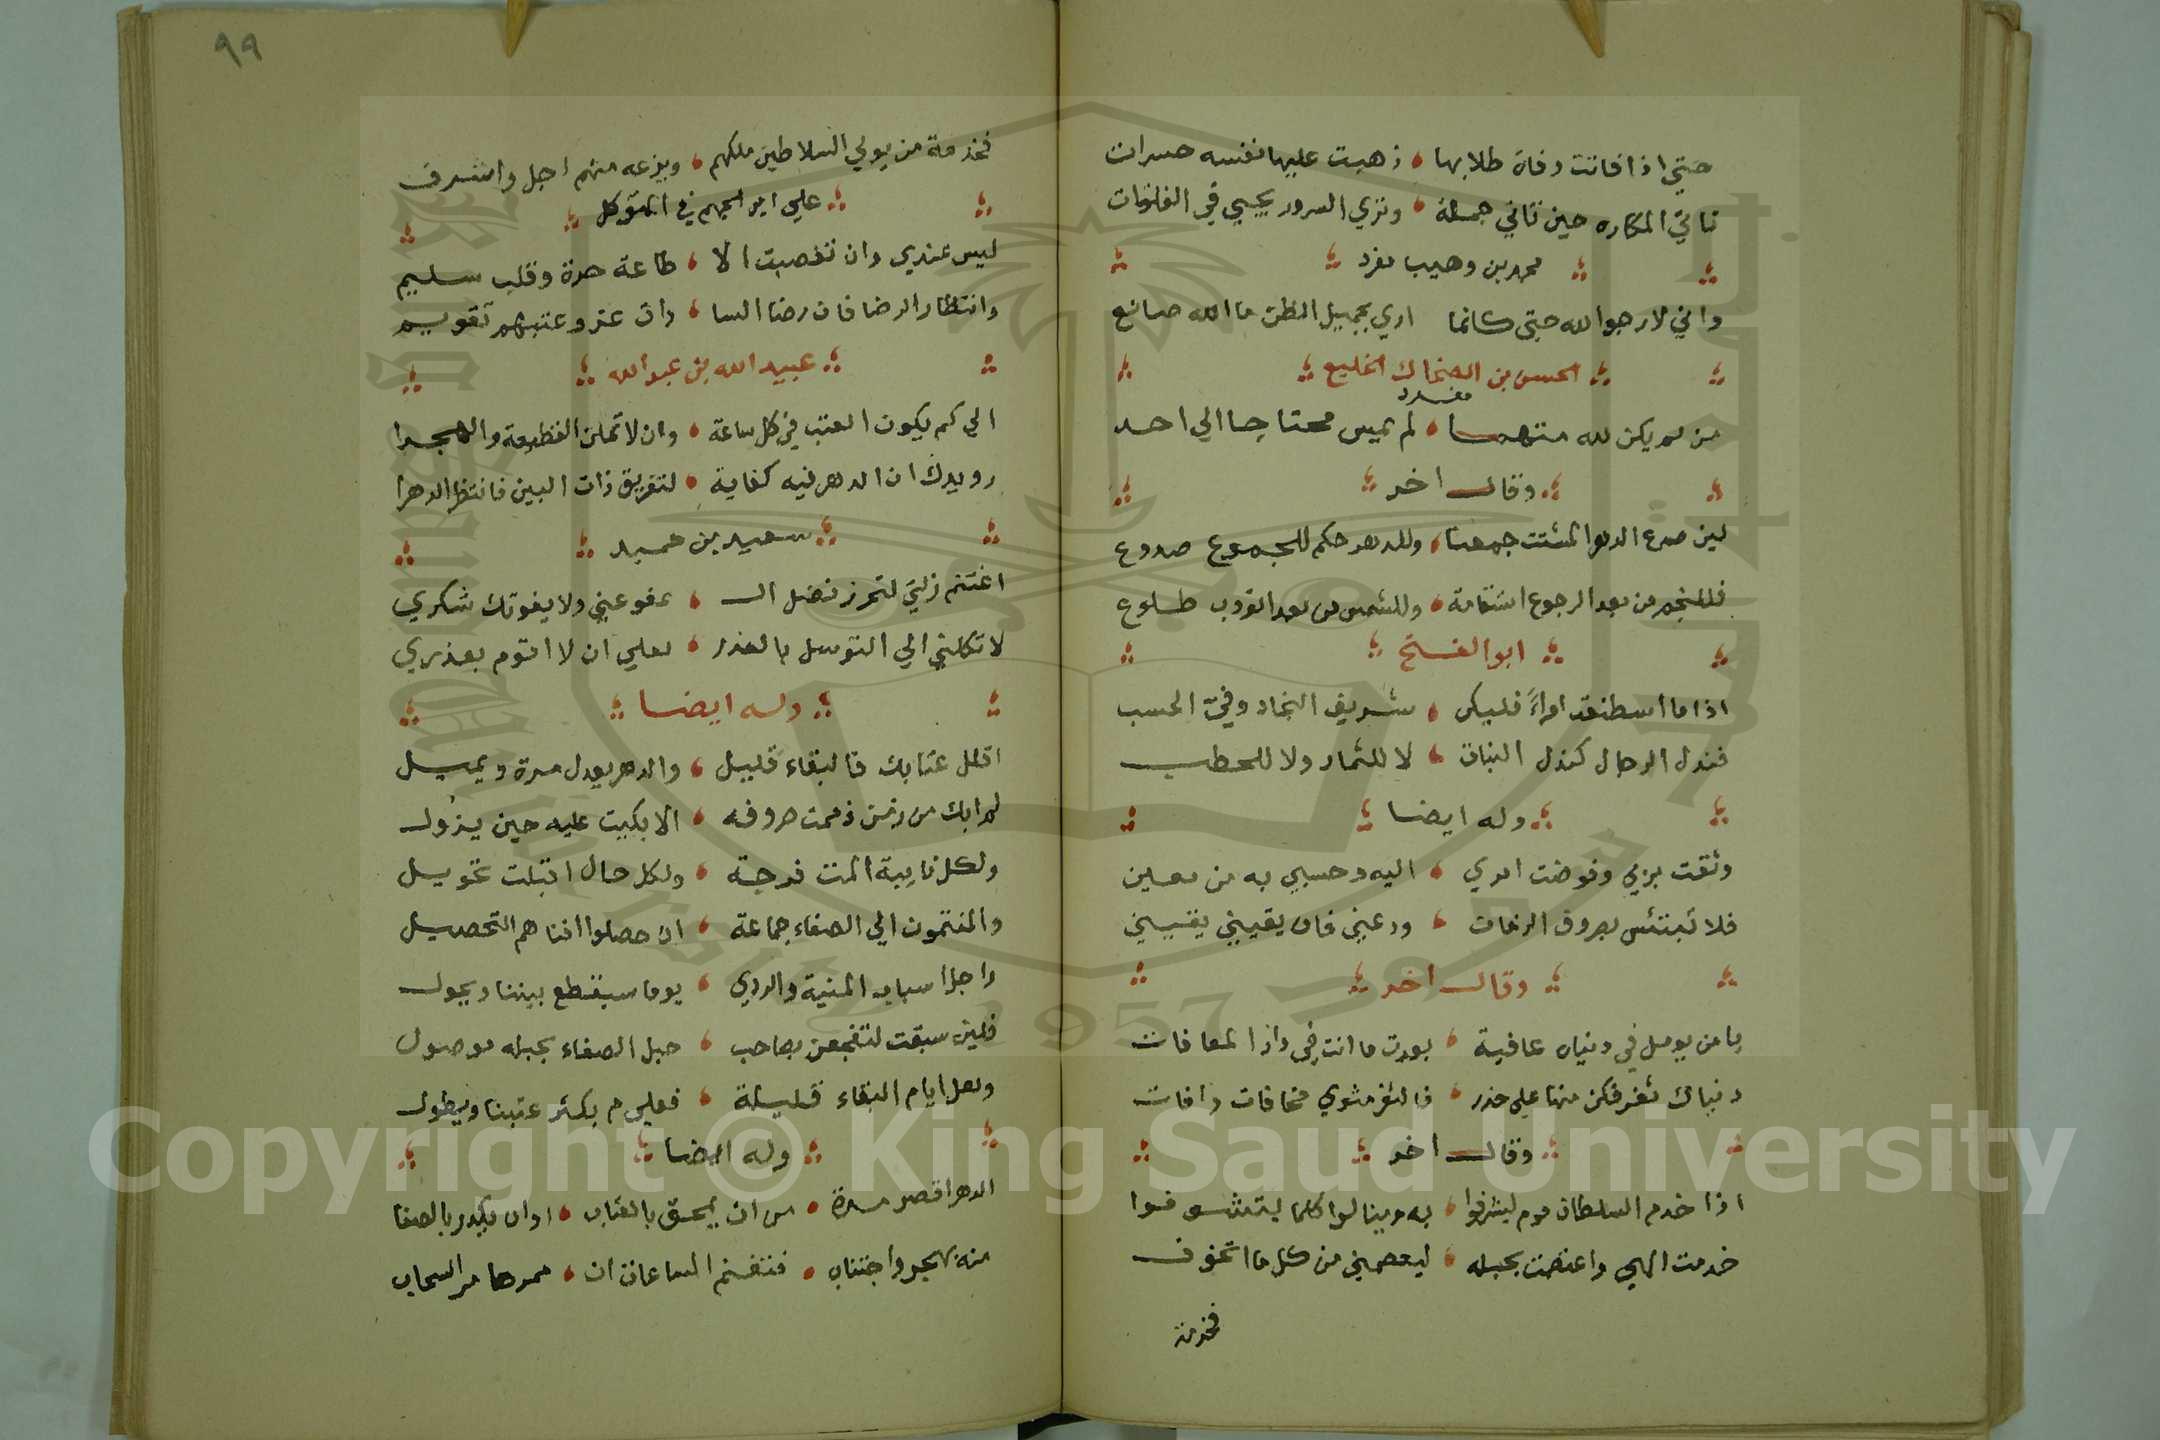 حتي اذا فاتت وفات طلابها ؛ ذهبت عليها نفسه حسرات
تاتي المكاره حين تاتي جملة ؛ وتري السرور يجيي في الفلتات
محمد بن وهيب مفرد
واني لارجوا لله حتي كانما اري بجميل الظن ما الله صانع
الحسن بن الضحاك الخليع
مفرد
من لم يكن لله متهما ؛ لم يمس محتاجا الي احد
وقال اخر
لين صدع الدهر المشتت جمعنا ؛ وللدهر حكم للجموع صدوع
فللنجم من بعد الرجوع استقامة ؛ وللشمس من بعد الغروب طلوع
ابو الفتح
اذا ما اصطنعت امراءً فليكن ؛ شريف النجاد وفي الحسب
فنذل الرجال كنذل النبات ؛ لا للثمار ولا للحطب
وله ايضا
وثقت بربي وفوضت امري ؛ اليه وحسبي به من معين
فلا تبتئس بصروف الزمان ؛ ودعني فان يقيني يقيني
وقال اخر
يا من يومل في دنياه عافية ؛ بعدت ما انت في دار المعافات
دنياك ثغر فكن منها علي حذر ؛ فالثغر مثوي مخافات وافات
وقال اخر
اذا خدم السلطان قوم ليشرفوا ؛ به وينالوا كلما يتشوفوا
خدمت الهي واعتصمت بحبله ؛ ليعصمني من كل ما اتخوف
فخدمة
٩٩
فخدمة من يولي السلاطين ملكهم ؛ وينزعه منهم اجل واشرف
علي ابن الجهم في المتوكل
ليس عندي وان تغضبت الا ؛ طاعة حرة وقلب سليم
وانتظار الرضا فان رضا السا ؛ دات عز وعتبهم تقويم
عبيد الله بن عبد الله
الي كم يكون العتب في كل ساعة ؛ وان لا تملن القطيعة والهجرا
رويدك ان الدهر فيه كفاية ؛ لتفريق ذات البين فانتظر الدهرا
سعيد بن حميد
اغتنم زلتي لتحرز فضل الـ ؛ عفو عني ولا يفوتك شكري
لا تكلني الي التوسل بالعذر ؛ لعلي ان لا اقوم بعذري
وله ايضا
اقلل عتابك فالبقاء قليل ؛ والدهر يعدل مرة ويميل
لم ابك من زمن ذممت صروفه ؛ الا بكيت عليه حين يزول
ولكل نايبة المت فرجة ؛ ولكل حال اقبلت تحويل
والمنتمون الي الصفاء جماعة ؛ ان حصلوا افناهم التحصيل
واجل اسباب المنية والردي ؛ يوما سيقطع بيننا ويحول
فلين سبقت لتفجعن بصاحب ؛ حبل الصفاء بحبله موصول
ولعل ايام البقاء قليلة ؛ فعلي م يكثر عتبنا ويطول
وله ايضا
الدهر اقصر مدة ؛ من ان يمحق بالعتاب ؛ اوان يكدر بالصفا
منه بهجر واجتناب ؛ فتغنم الساعات ان ؛ ممرها مر السحاب
Copyright © King Saud University
1957